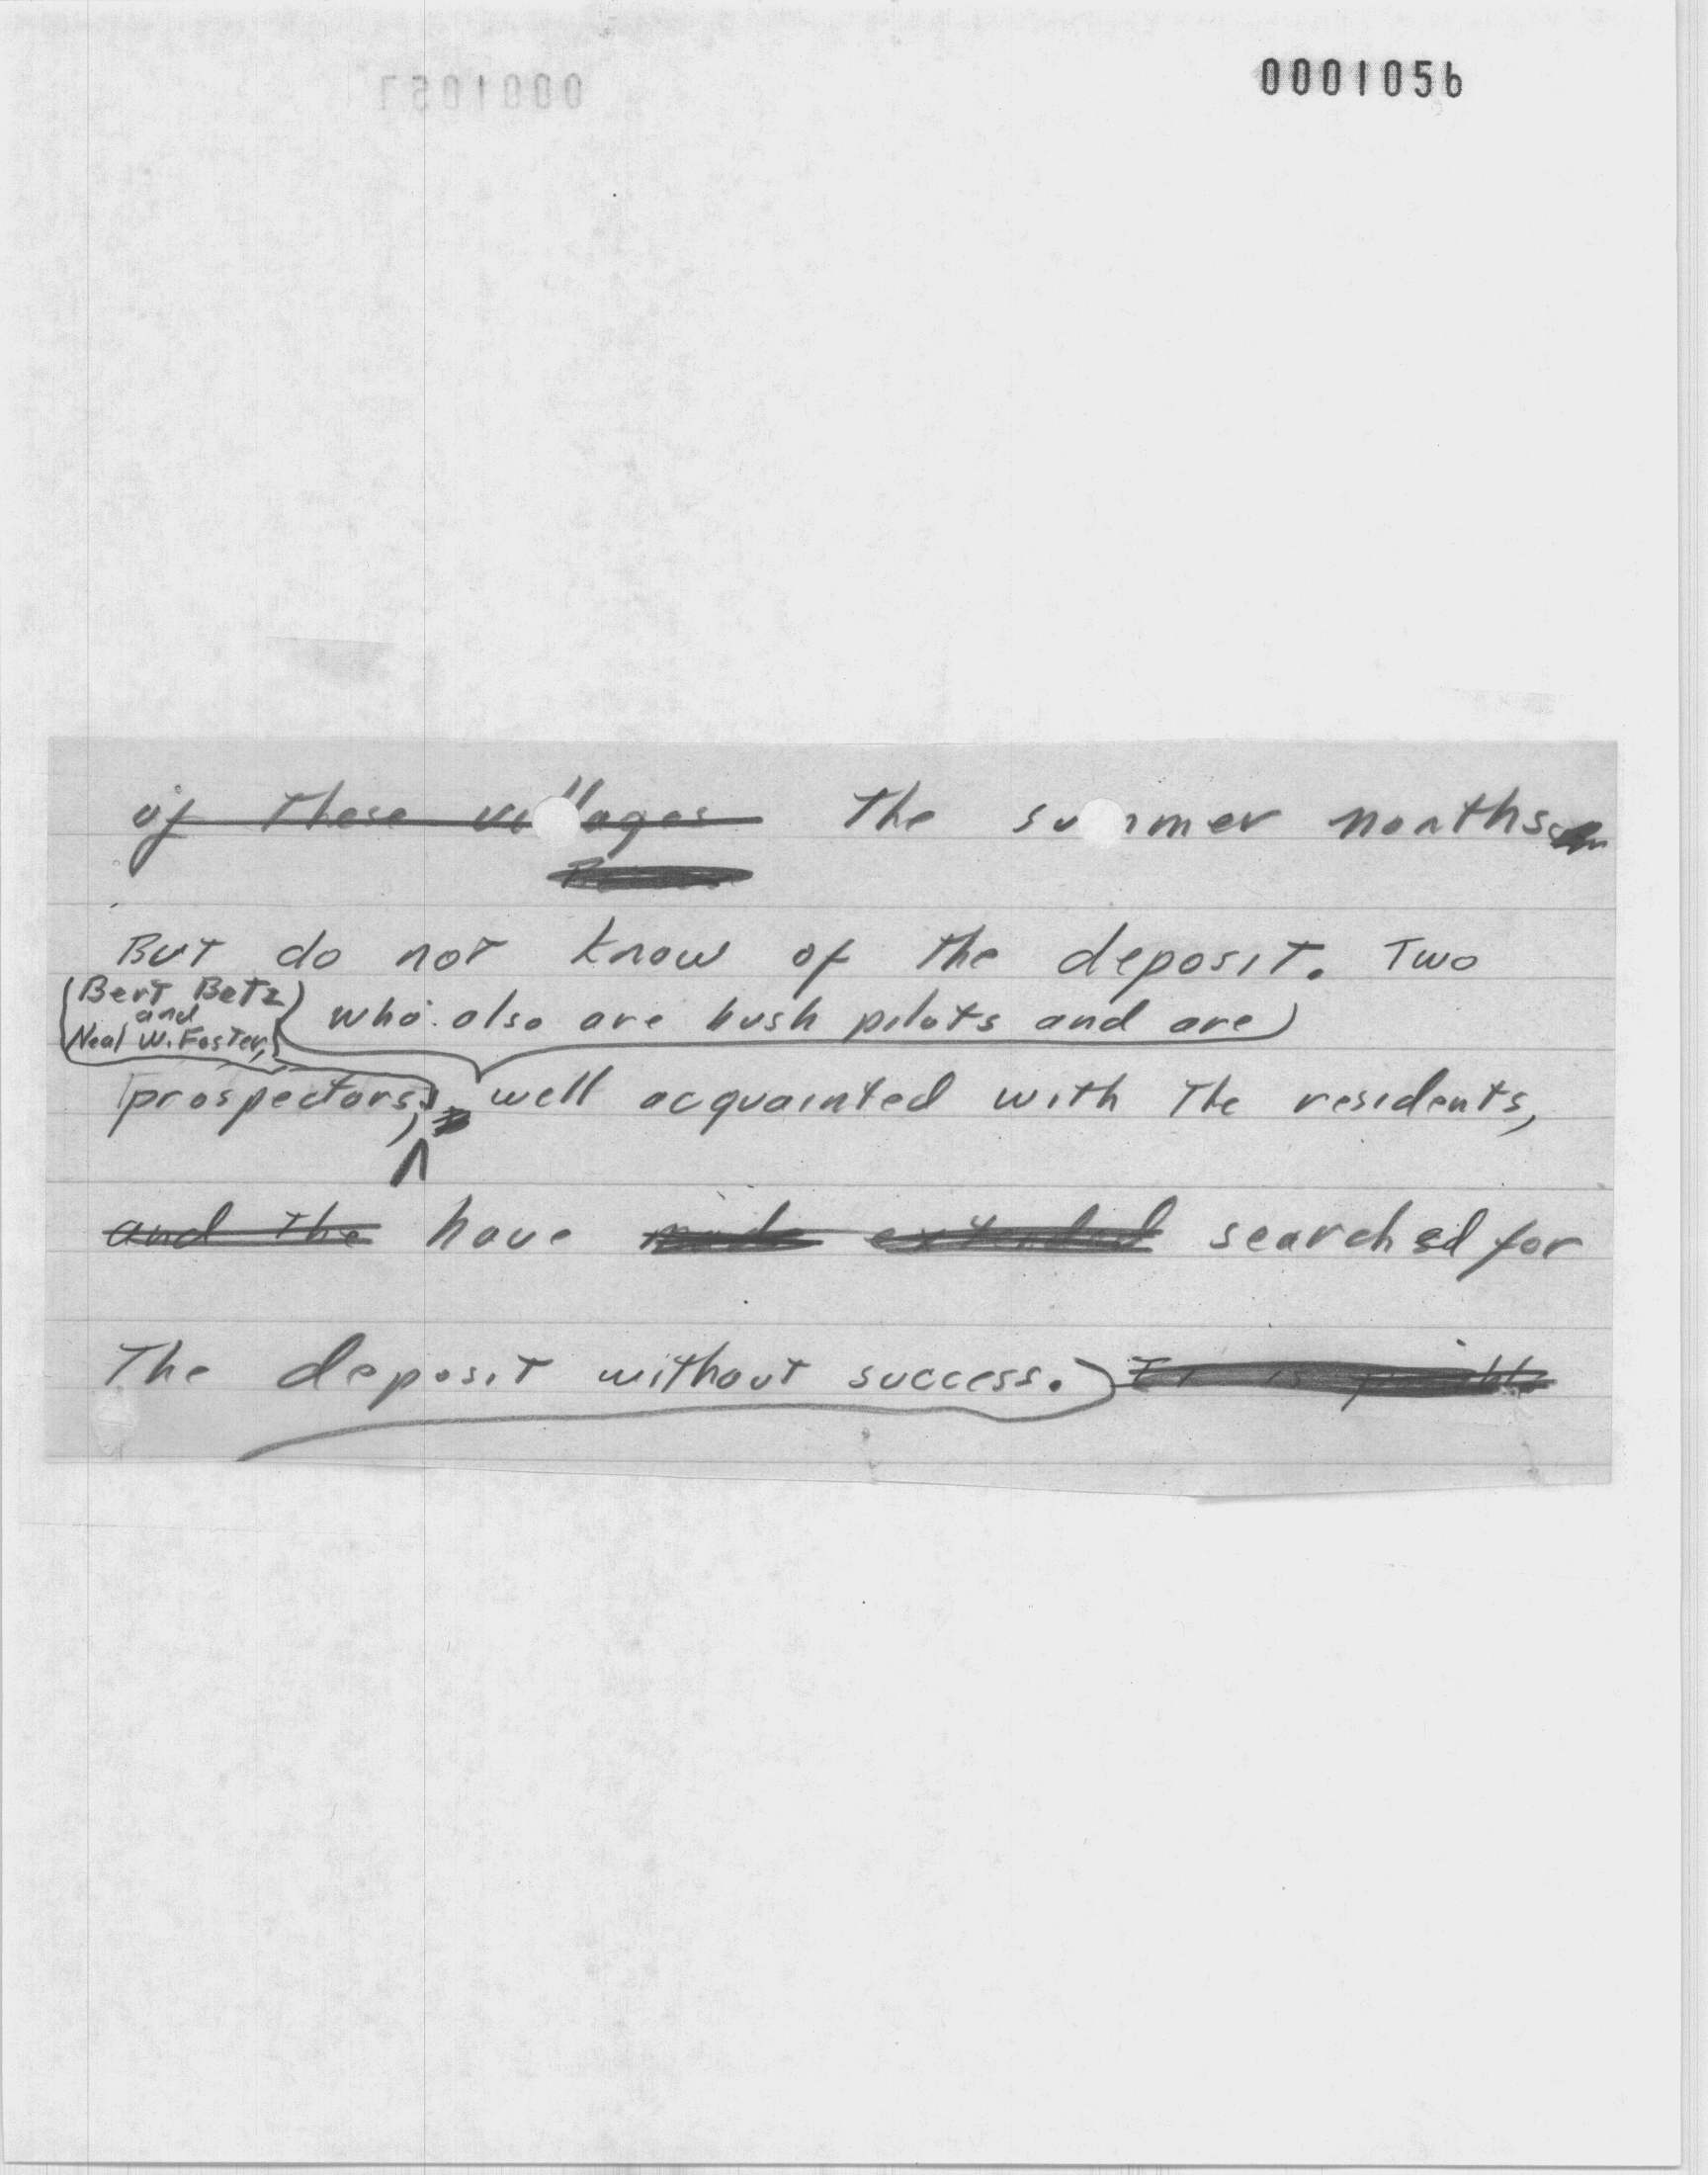 0001056
0001057
of these villages The summer months
But do not know of the deposit. Two
(Bert Betz)
and
Neal W. Foster,
who also are bush pilots and are
prospectors, well acquainted with The residents,
and the have made extended searched for
The deposit without success.) It is possible